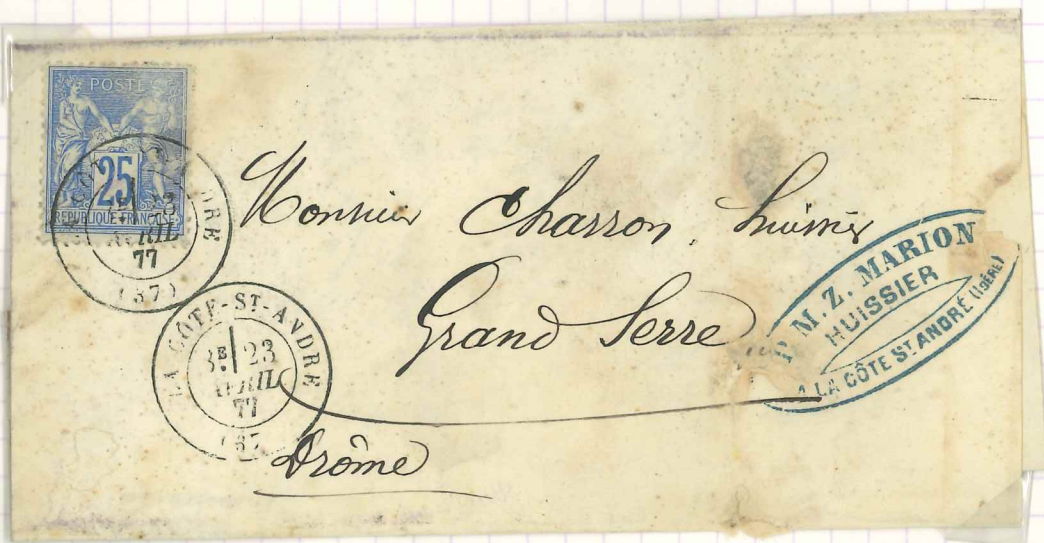 POSTE
25
REPUBLIQUE FRANCAISE
DRE
AVRIL
77
(37)
LA CÔTE-ST-ANDRE
3E 23
AVRIL
77
(37
Monsieur Charron, huissier
Grand Serre
Drôme
P. M. Z. MARION
HUISSIER
A LA CÔTE ST ANDRÉ (ISÈRE)